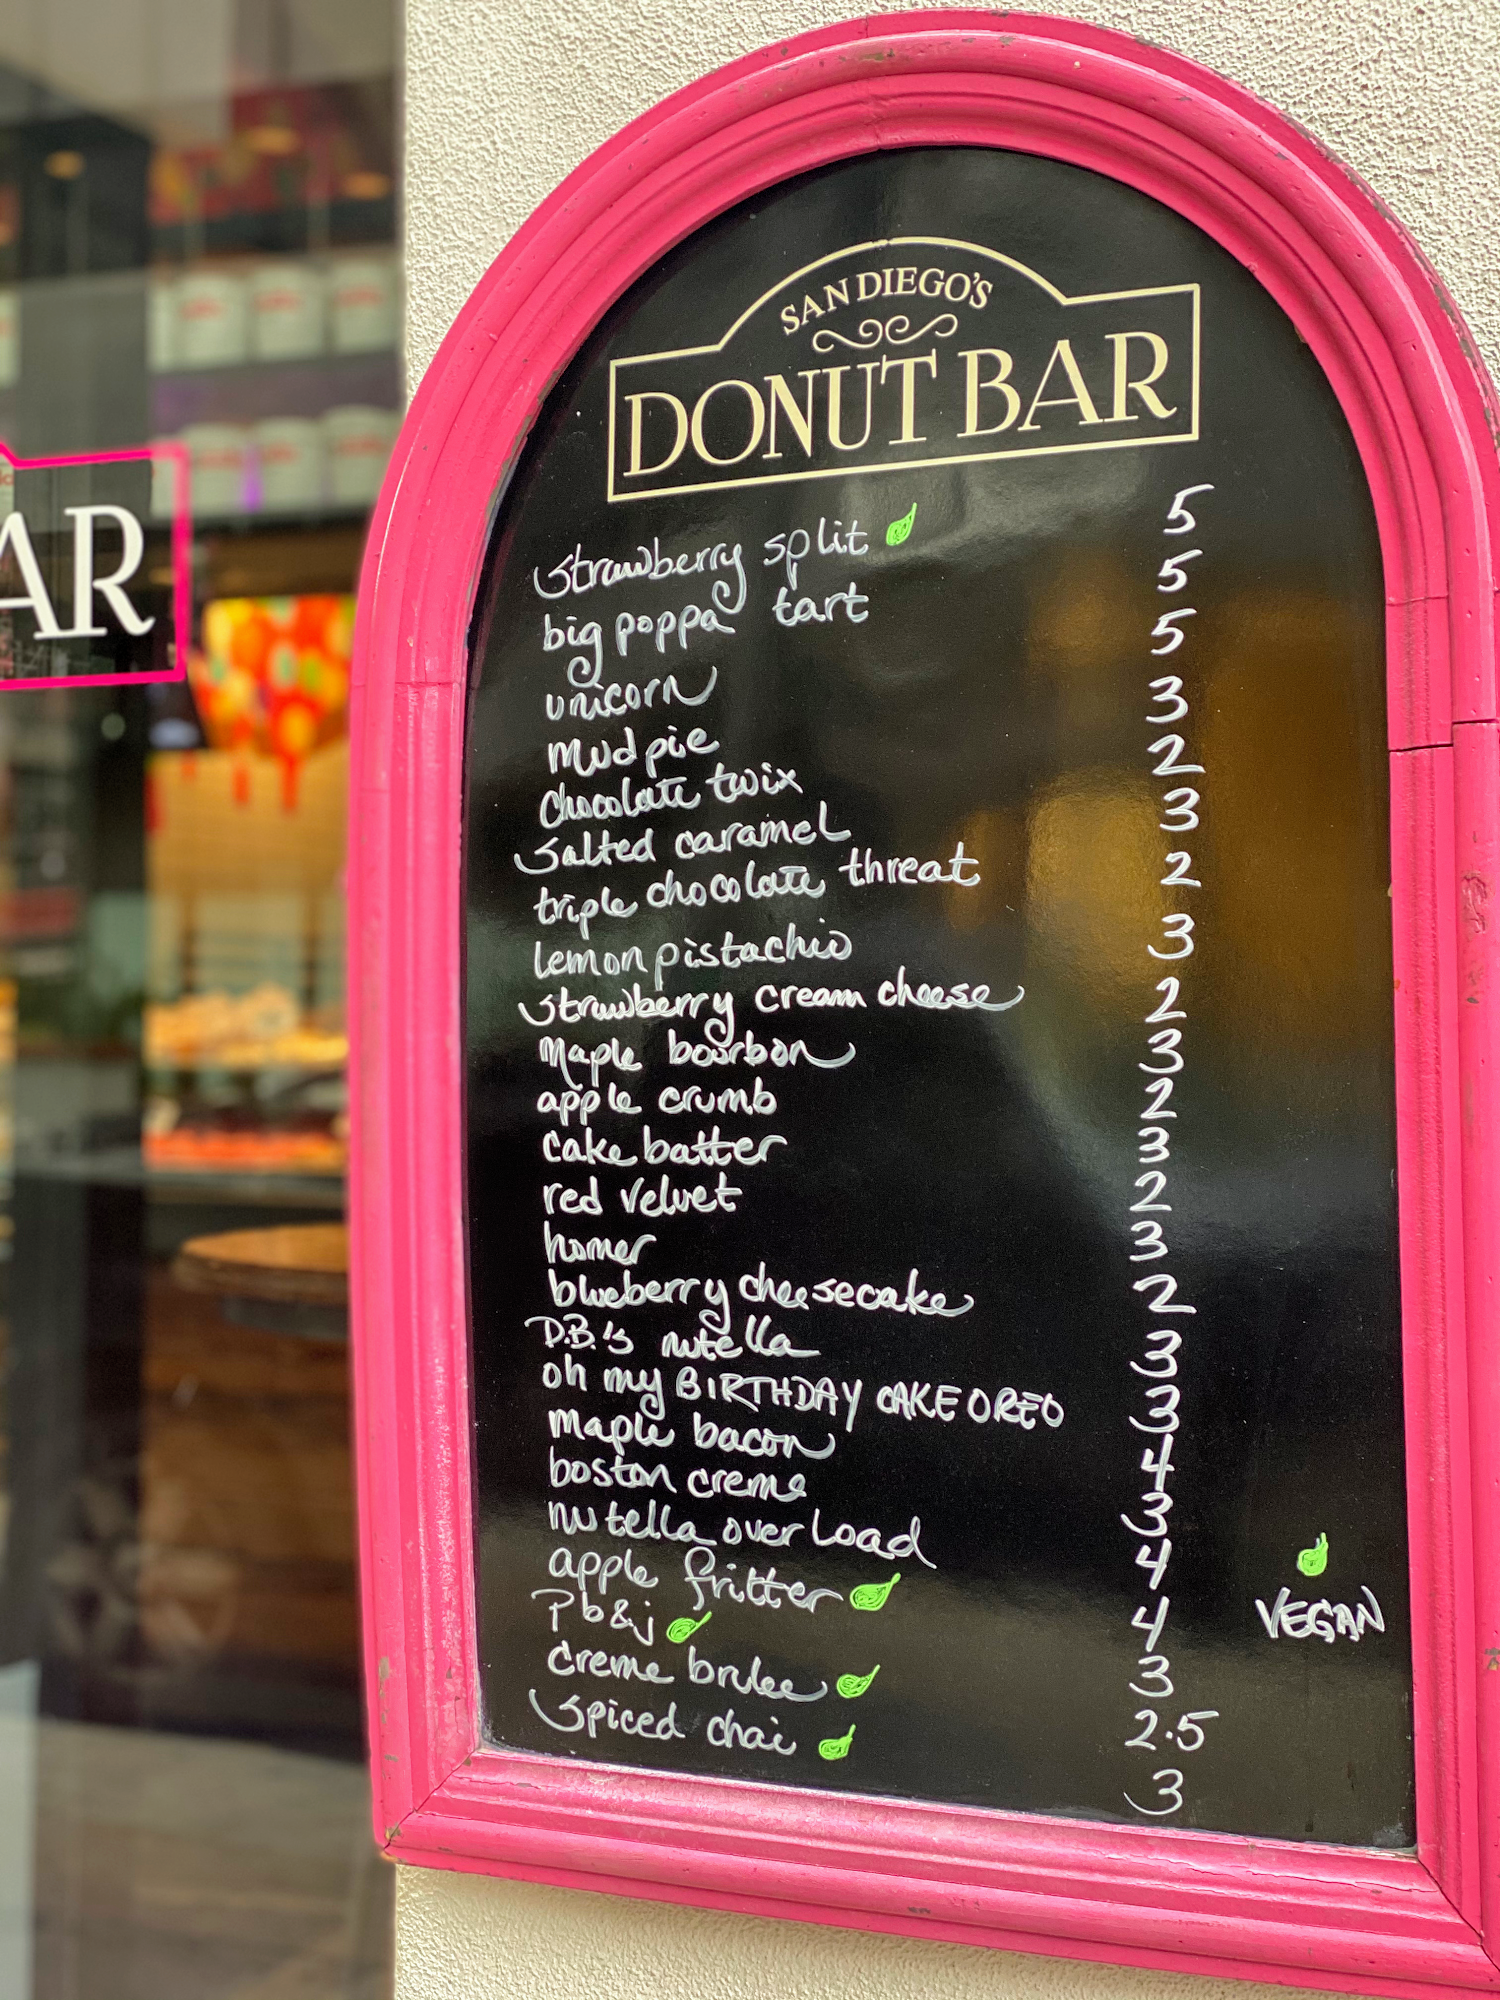 AR
SAN DIEGO'S
DONUT BAR
strawberry split 5
big poppa tart 5
unicorn 5
mud pie 3
chocolate twix 2
salted caramel 3
triple chocolate threat 2
lemon pistachio 3
strawberry cream cheese 2
maple bourbon 3
apple crumb 2
cake batter 3
red velvet 2
homer 3
blueberry cheesecake 2
D.B.'s nutella 3
oh my BIRTHDAY CAKE OREO 3
maple bacon 4
boston creme 3
nutella overload 4
apple fritter 4
Pb&j 3
creme brulee 2.5
spiced chai 3
VEGAN